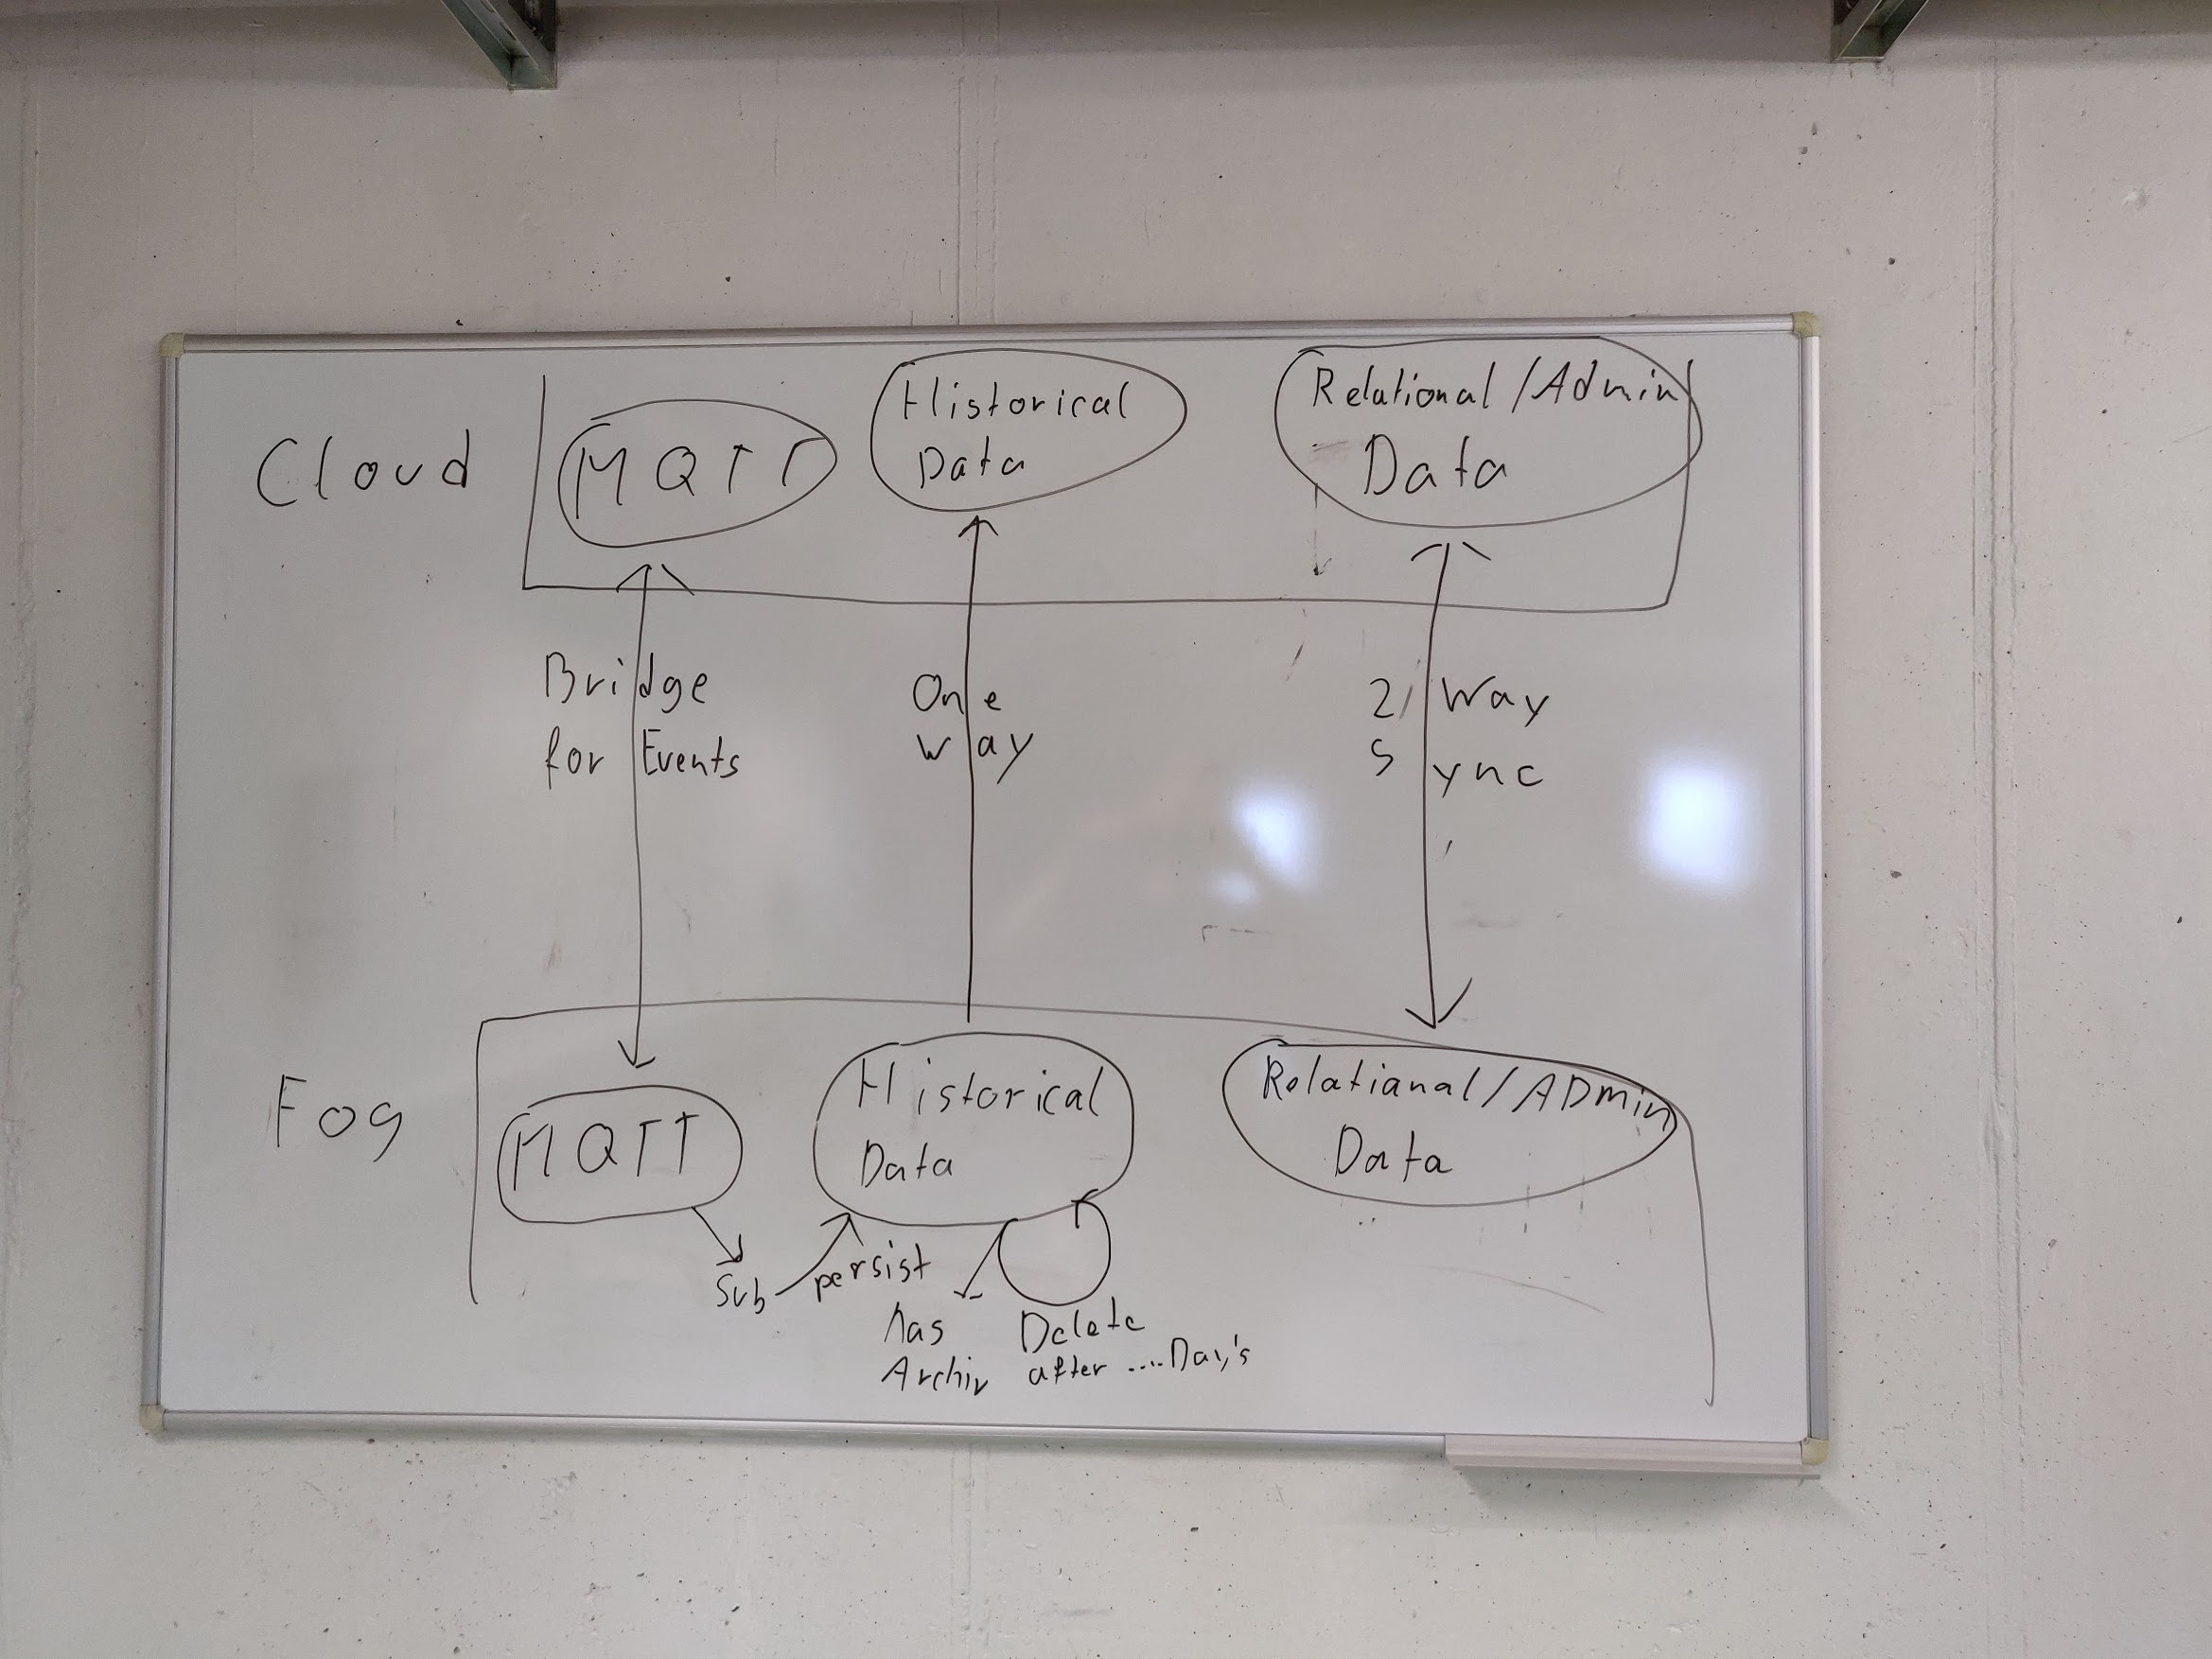 Cloud
MQTT
Historical
Data
Relational/Admin
Data
Bridge
for Events
One
way
2 Way
Sync
Fog
MQTT
Historical
Data
Relatianal/ADmin
Data
Sub
persist
has
Archiv
Delete
after ....Day's